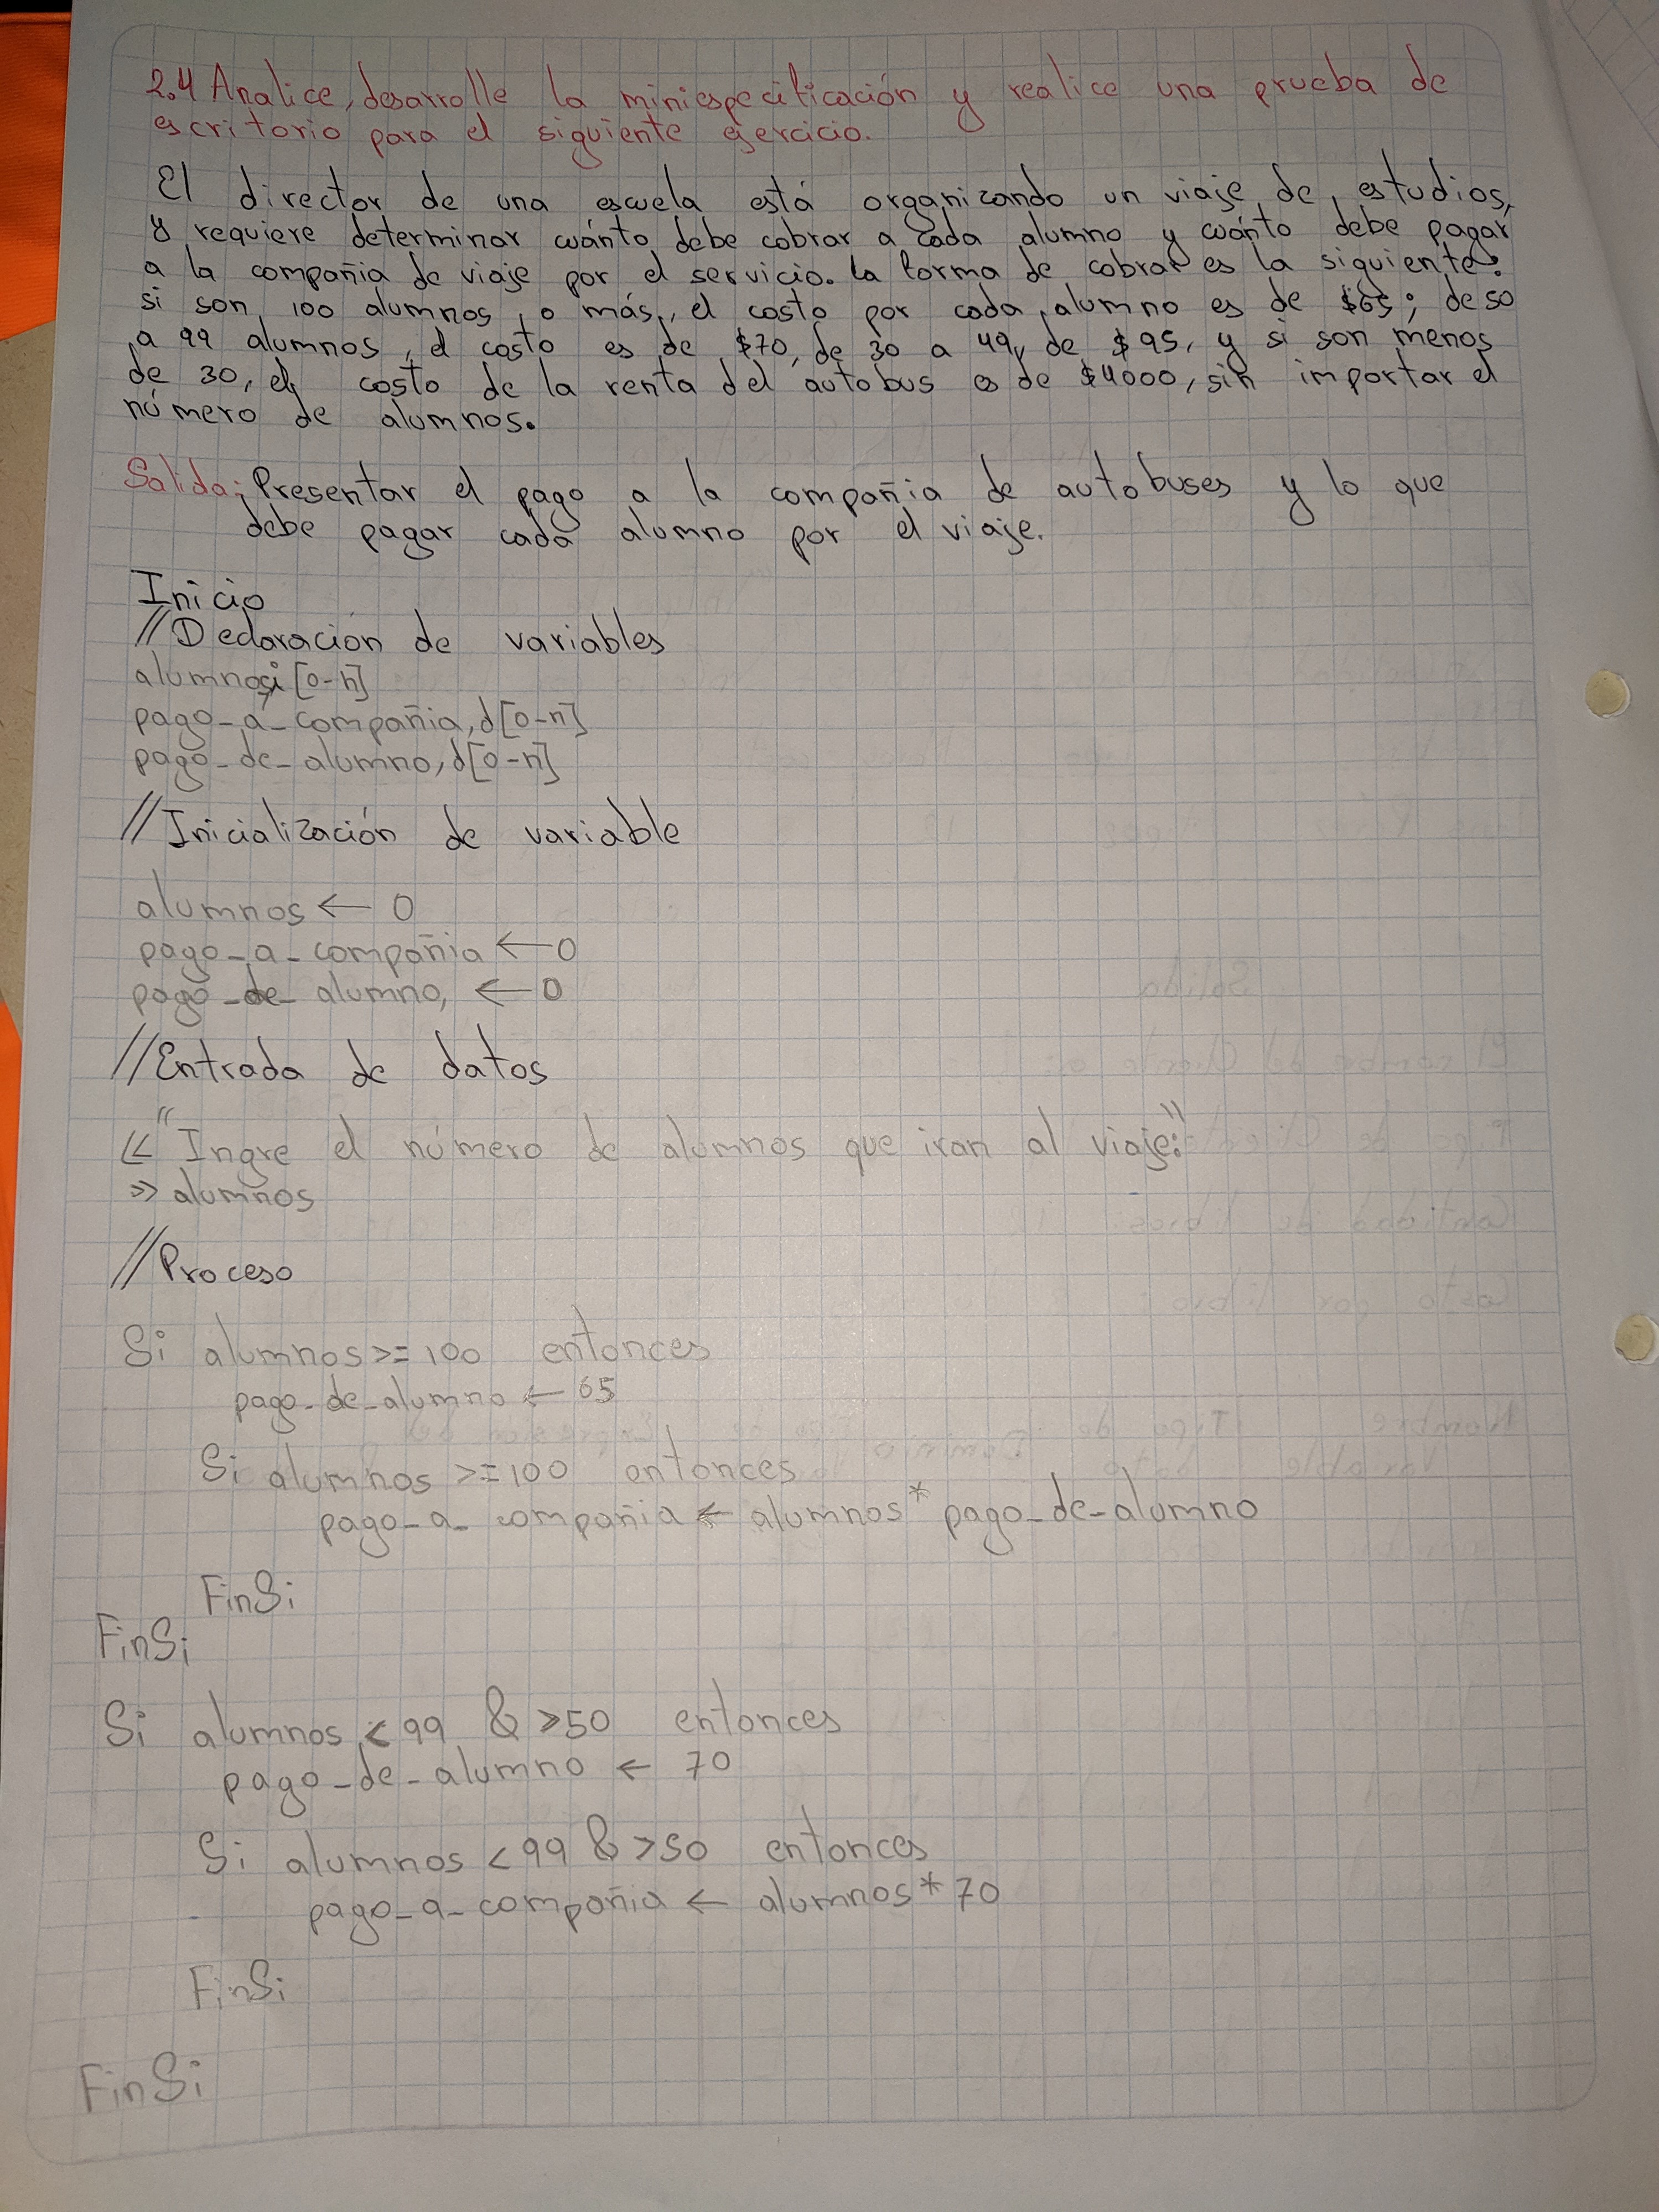 2.4 Analice, desarrolle la miniespecificación y realice una prueba de
escritorio para el siguiente ejercicio.
El director de una escuela está organizando un viaje de estudios,
y requiere determinar cuánto debe cobrar a cada alumno y cuánto debe pagar
a la compañia de viaje por el servicio. La forma de cobrar es la siguiente:
si son 100 alumnos o más, el costo por cada alumno es de $65; de 50
a 99 alumnos, el costo es de $70, de 30 a 49, de $95, y si son menos
de 30, el costo de la renta del autobus es de $4000, sin importar el
número de alumnos.
Salida: Presentar el pago a la compañia de autobuses y lo que
debe pagar cada alumno por el viaje.
Inicio
//Declaración de variables
alumnos,i [0-n]
pago_a_compañia, d[0-n]
pago_de_alumno, d[0-n]
//Inicialización de variable
alumnos ← 0
pago_a_compañia ← 0
pago_de_alumno, ← 0
//Entrada de datos
<< "Ingre el número de alumnos que iran al viaje:"
>> alumnos
//Proceso
Si alumnos >= 100 entonces
pago_de_alumno ← 65
Si alumnos >= 100 entonces
pago_a_compañia ← alumnos * pago_de_alumno
FinSi
FinSi
Si alumnos < 99 & >50 entonces
pago_de_alumno ← 70
Si alumnos < 99 & >50 entonces
pago_a_compañia ← alumnos * 70
FinSi
FinSi